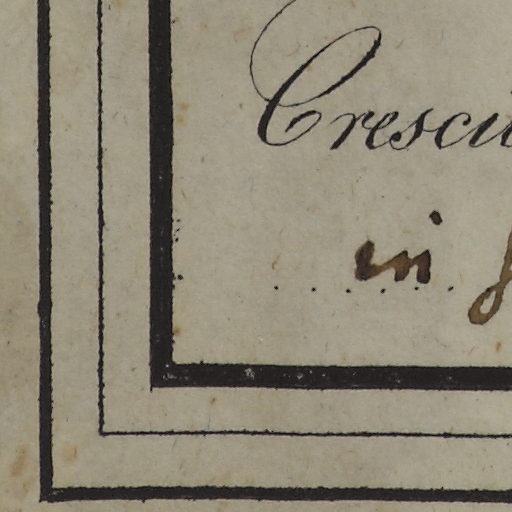 Cresci
in